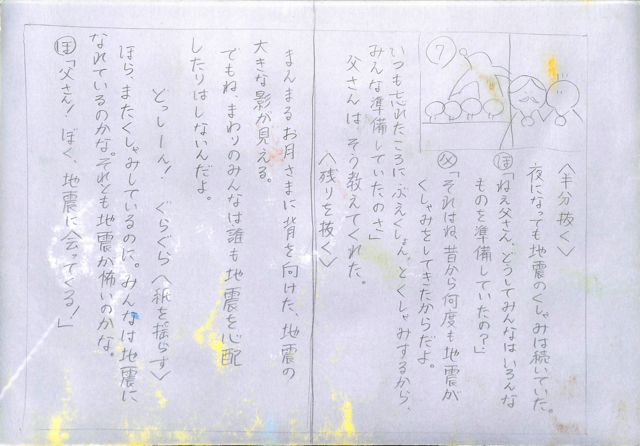 ⑦
〈半分抜く〉
夜になっても地震のくしゃみは続いていた。
ぼ「ねえ父さん、どうしてみんなはいろんな
ものを準備していたの？」
父「それはね、昔から何度も地震が
くしゃみをしてきたからだよ。
いつも忘れたころに、ぶえくしょん。とくしゃみするから、
みんな準備していたのさ」
父さんは、そう教えてくれた。
〈残りを抜く〉
まんまるお月さまに背を向けた、地震の
大きな影が見える。
でもね、まわりのみんなは誰も地震を心配
したりはしないんだよ。
どっしーん！ ぐらぐら〈紙を揺らす〉
ほら、またくしゃみしているのに。みんなは地震に
なれているのかな。それとも地震が怖いのかな。
ぼ「父さん！ぼく、地震に会ってくる！」